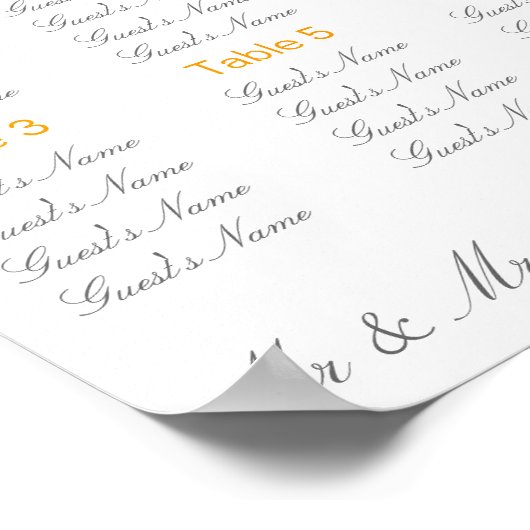 Guest's Name
Guest's Name
Guest's Name
Table 5
Guest's Name
Guest's Name
Guest's Name
Guest's Name
3
Guest's Name
Guest's Name
Guest's Name
Guest's Name
Mr & Mr